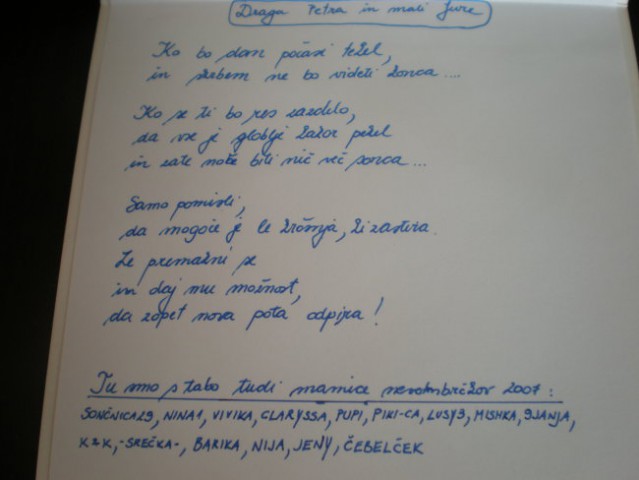 Draga Petra in mali Jure
Ko bo dan počasi težel,
in srebem ne bo videti konca ....
Ko se ti bo res zazdelo,
da vse je globlji žažor pežel
in zate noče biti nič več sonca ...
Samo pomisli,
da mogoče je le krošnja, ki zastira.
Le premakni se
in daj mu možnost,
da zopet nova pota odpira!
Tu smo s tabo tudi mamice novembrčkov 2007 :
SONČNICA29, NINA1, VIVIKA, CLARYSSA, PUPI, PIKI-CA, LUSY3, MISHKA, 9JANJA,
K2K, -SREČKA-, BARIKA, NIJA, JENY, ČEBELČEK